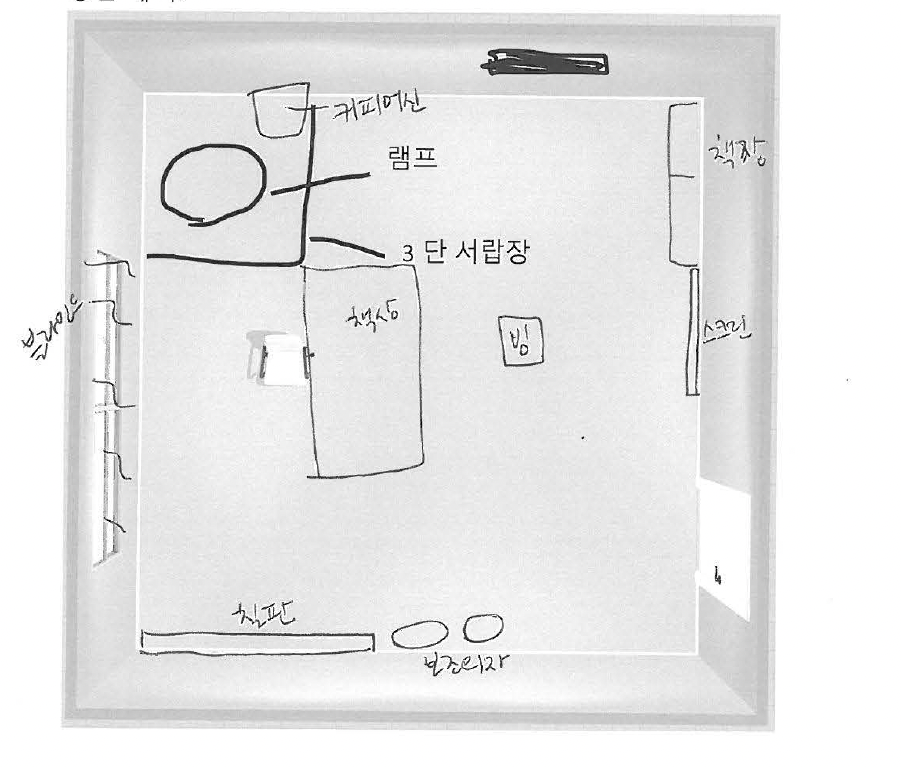 커피머신
램프
책장
3 단 서랍장
책상
블라인드
빔
스크린
칠판
보조의자